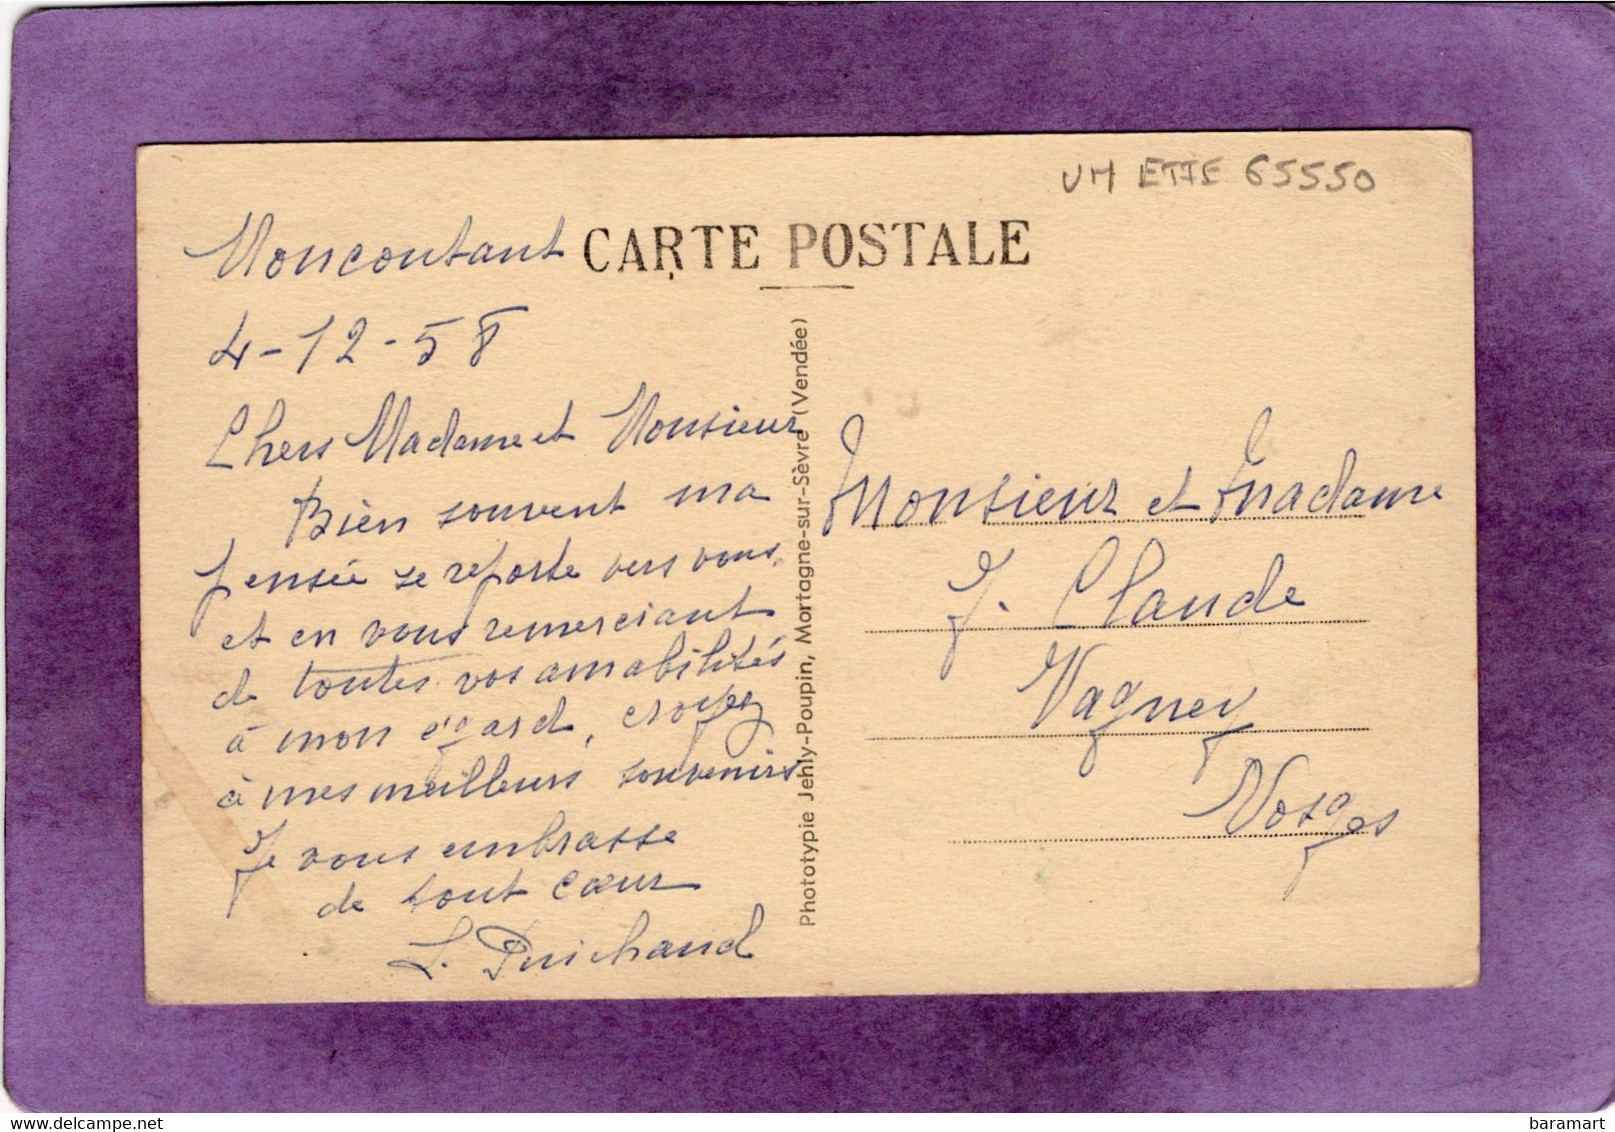 UM ETTE 65550
CARTE POSTALE
Moncoutant
4-12-58
Chers Madame et Monsieur
Bien souvent ma
pensée se reporte vers vous
et en vous remerciant
de toutes vos amabilités
à mon égard, croyez
à mes meilleurs souvenirs
Je vous embrasse
de tout cœur
Phototypie Jehly-Poupin, Mortagne-sur-Sèvre (Vendée)
Monsieur et Madame
J. Claude
Vagney
Vosges
baramart